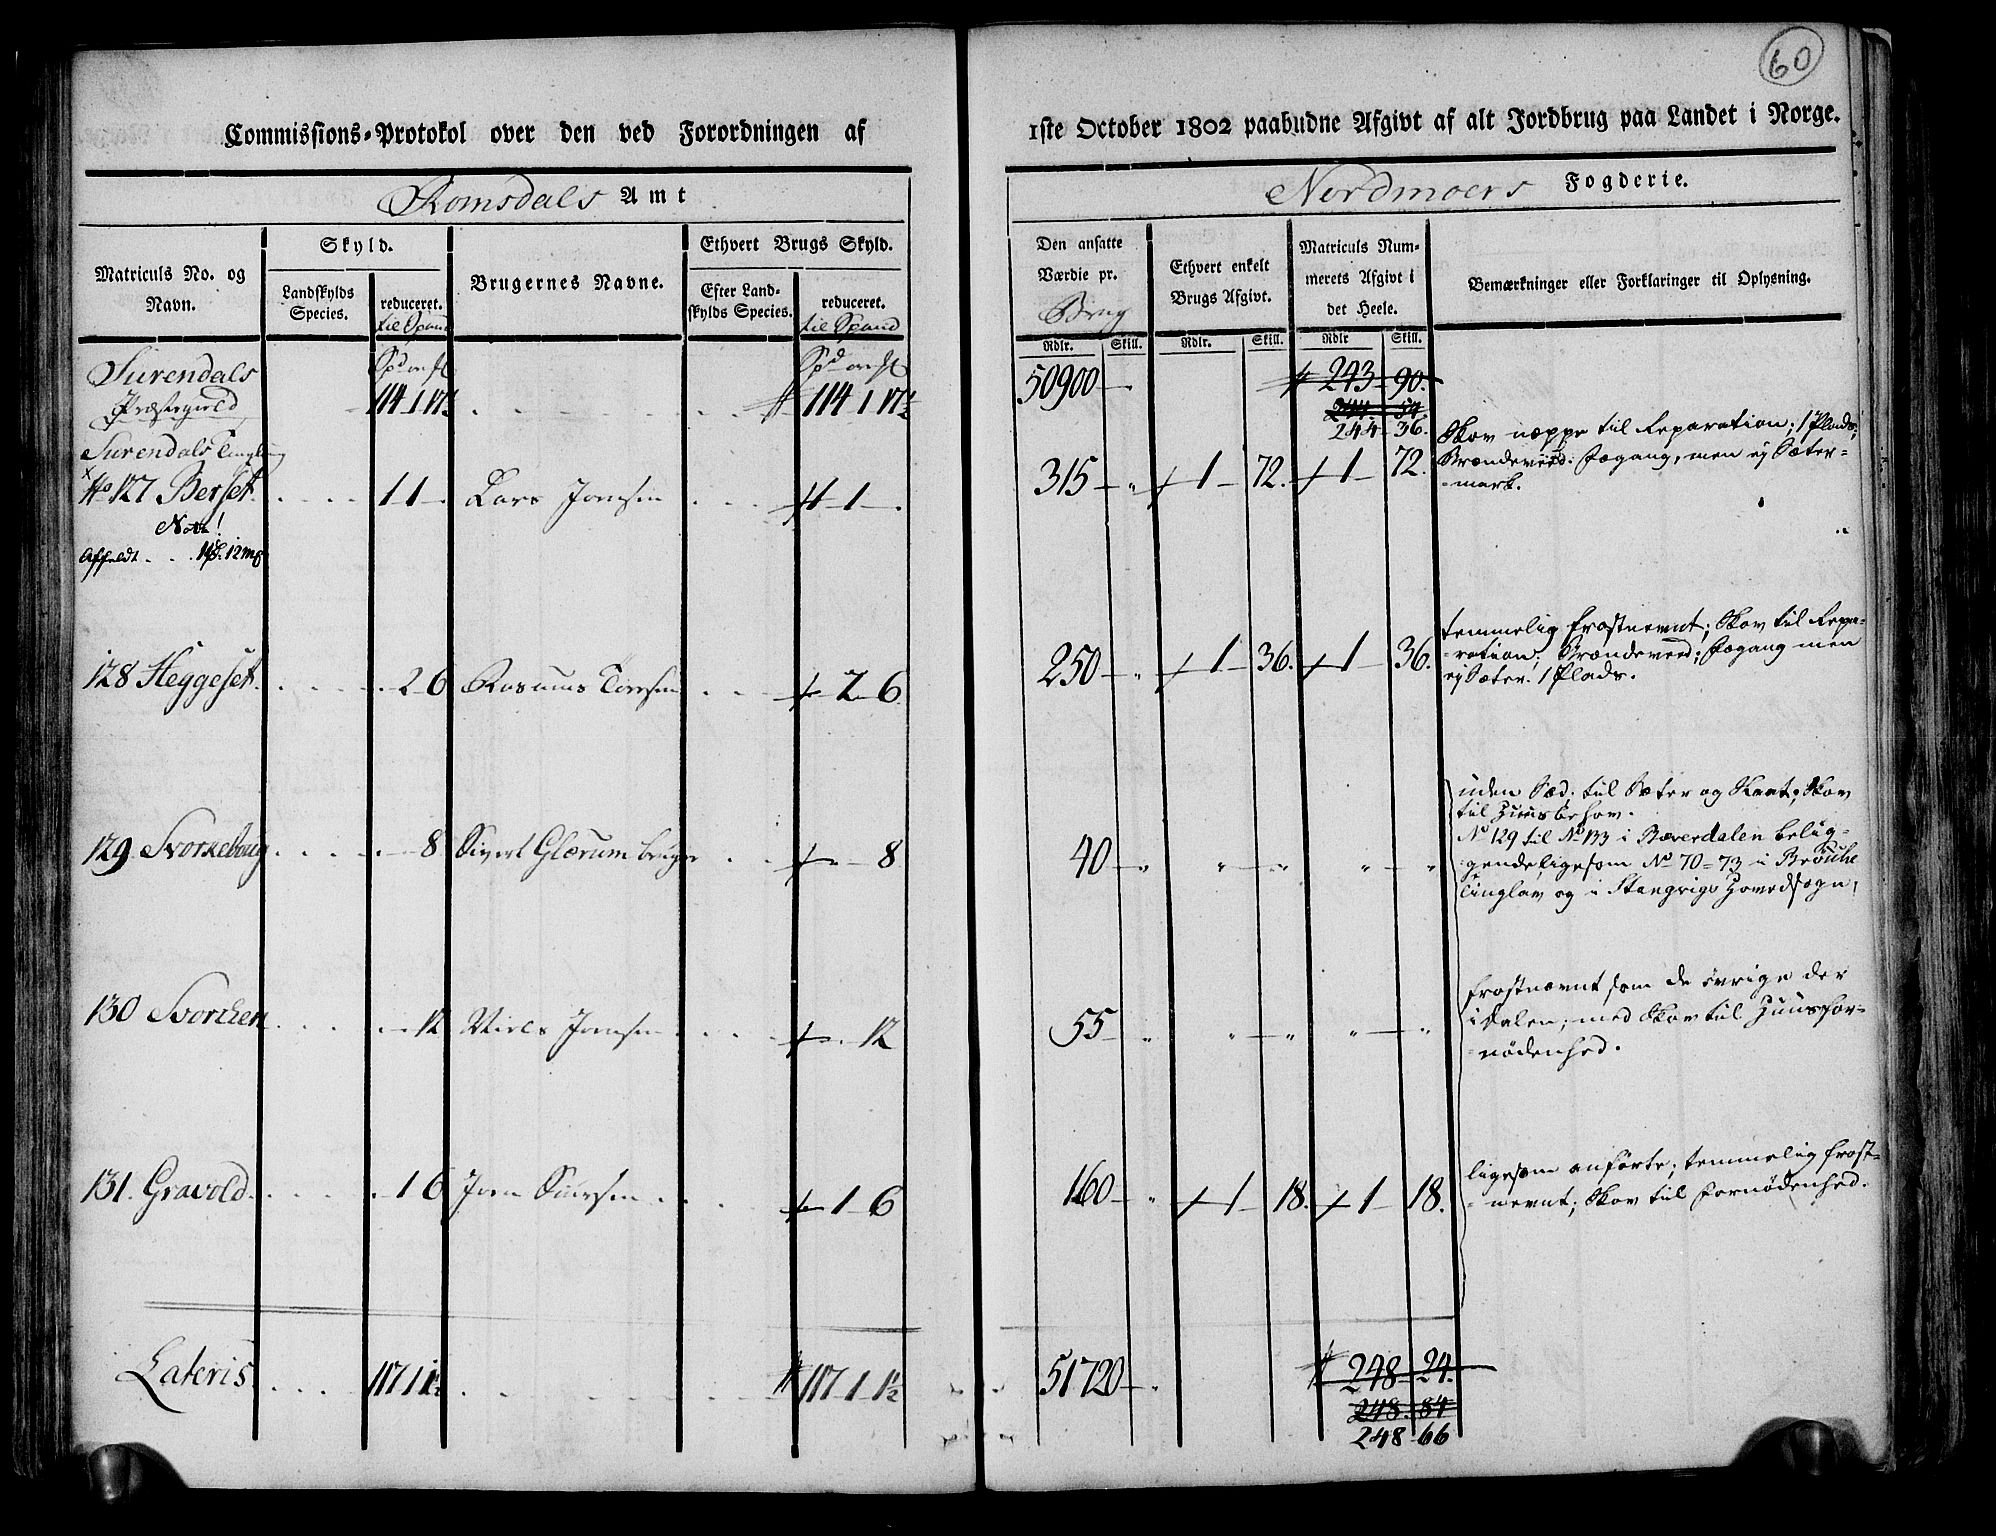 60
Commissions-Protokol over den ved Forordningen af
1ste October 1802 paabudne Afgivt af alt Jordbrug paa Landet i Norge.
Romsdals Amt
Nordmoers Fogderie.
Matriculs No. og Navn.
Skyld.
Landskylds Species.
reduceret.
til Spand
Brugernes Navne.
Ethvert Brugs Skyld.
Efter Landskylds Species.
reduceret.
til Spand
Den ansatte Værdie pr.
Brug
Rdlr. Skill.
Ethvert enkelt Brugs Afgivt.
Rdlr. Skill.
Matriculs Nummerets Afgivt i det Heele.
Rdlr Skill.
Bemærkninger eller Forklaringer til Oplysning.
Surendals
Præstegield
114 1 17½ 114 1 17½ 50900 243 90.
244 54
244 36.
Surendals Tinglaug
No 127 Berset 1 1 Lars Joensen 1 1 315 1 72. 1 72.
Skov neppe til Reparation; 1 Plads;
Brændeved. Fægang, men ej Sæter-
mark.
Nota!
Affældt 1 12 mk
128 Heggeset 2 6 Rasmus Toresen 2 6 250 1 36. 1 36.
temmelig frostnemt; Skov til Repa-
ration, Brændeved; Fægang men
ej Sæter. 1 Plads.
129 Svorkeboug 8 Sivert Glærum bruger 8 40
uden Sæd. til Sæter og Skaat; Skov
til Huusbehov.
No 129 til No 133 i Bæverdalen belig-
gende, ligesom No 70-73 i
Tinglav og i Stangvigs Hovedsogn,
130 Svorchen 12 Niels Joensen 12 55
frostnemt som de øvrige der
i Dalen; med Skov til Huusfor-
nødenhed.
131. Gravold 1 6 Joen Siursen 1 6 160 1 18. 1 18.
ligesom anførte; temmelig frost-
nemt; Skov til Fornødenhed.
Lateris 117 1 1½ 117 1 1½ 51720 248 24.
248 84
248 66